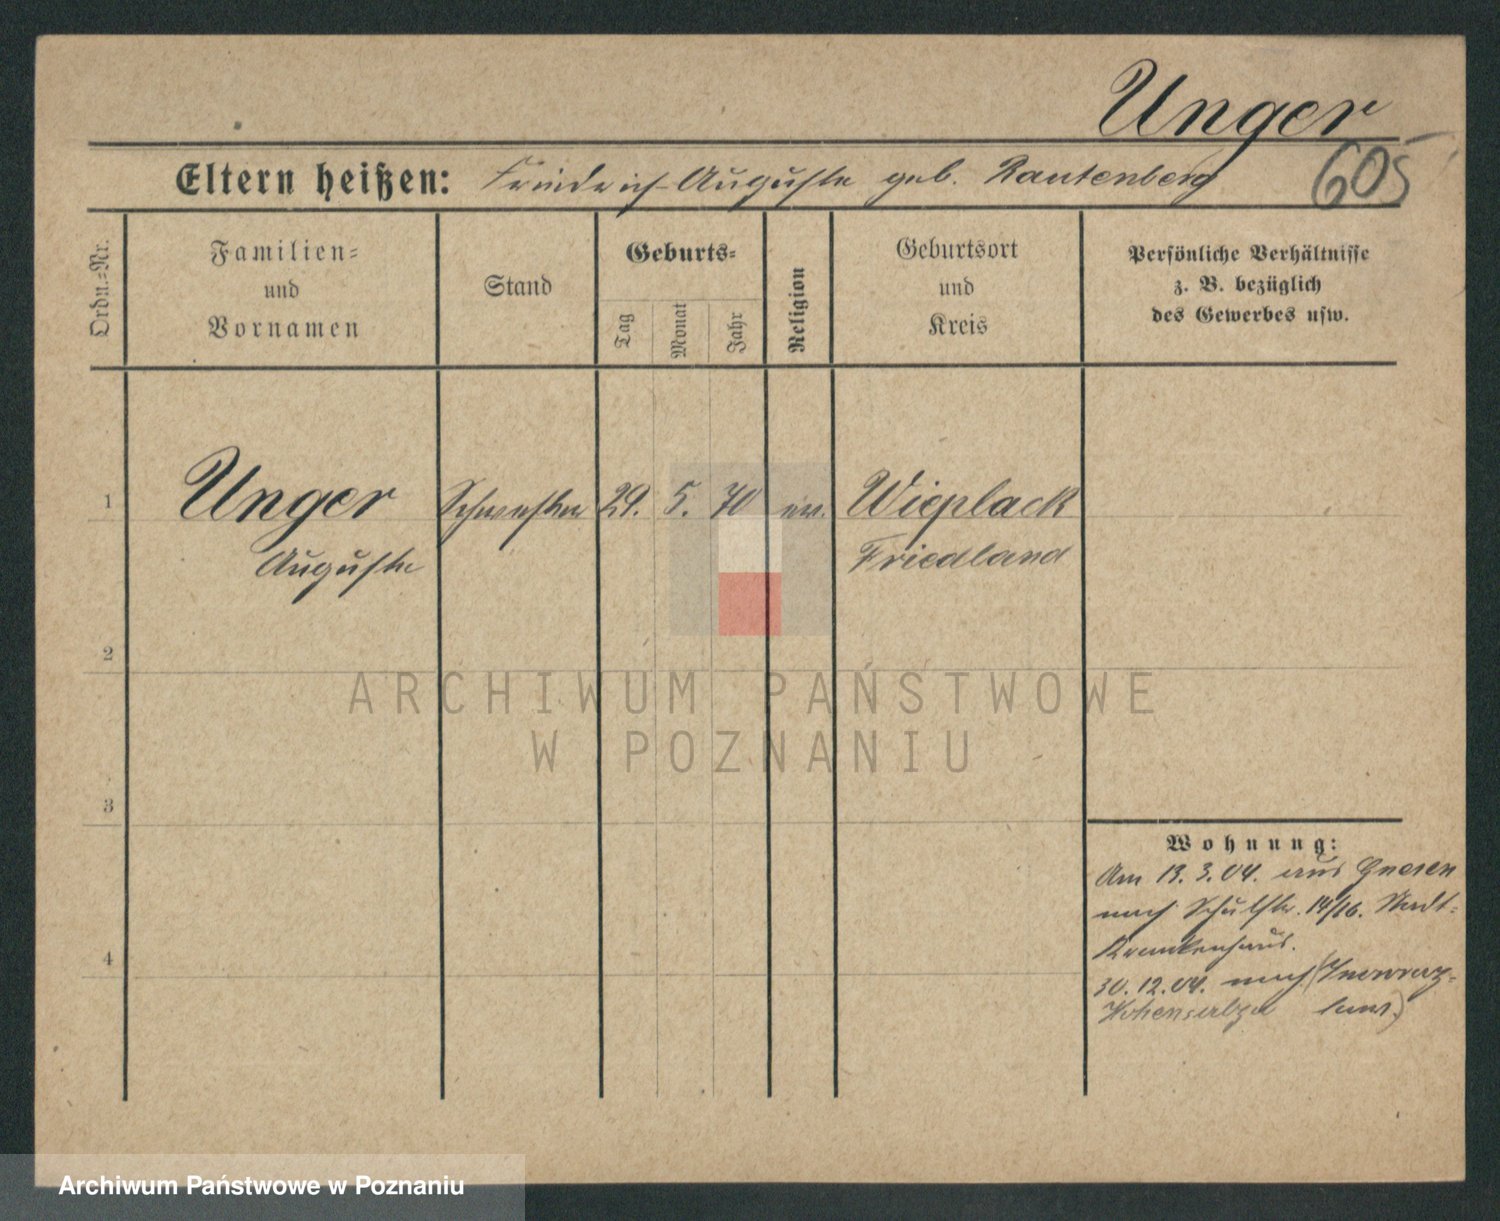 Unger
605
Eltern heißen: Friedrich-Auguste geb. Rautenberg
Ordn.-Nr.
Familien-
und
Vornamen
Stand
Geburts-
Tag
Monat
Jahr
Religion
Geburtsort
und
Kreis
Persönliche Verhältnisse
z. B. bezüglich
des Gewerbes usw.
1 Unger Schwester 29. 5. 70 ev. Wieplack
Auguste Friedland
2
3
4
Wohnung:
Am 13.3.04. aus Gnesen
nach Schulstr. 14/16. Stadt-
Krankenhaus.
30.12.04. nach (Inowraz-
Hohensalza law.)
ARCHIWUM PAŃSTWOWE
W POZNANIU
Archiwum Państwowe w Poznaniu